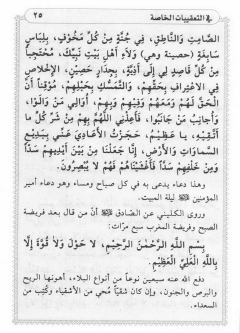 في التعقيبات الخاصة ٢٥
الصَّامِتِ وَالنَّاطِقِ، فِي جُنَّةٍ مِنْ كُلِّ مَخُوْفٍ، بِلِبَاسٍ
سَابِغَةٍ (حصينة وهي) وَلَاءِ أَهْلِ بَيْتِ نَبِيِّكَ، مُحْتَجِباً
مِنْ كُلِّ قَاصِدٍ لِي إِلَى أَذِيَّةٍ، بِجِدَارٍ حَصِيْنٍ، الإِخْلَاصِ
فِي الاعْتِرَافِ بِحَقِّهِمْ، وَالتَّمَسُّكِ بِحَبْلِهِمْ، مُوْقِناً أَنَّ
الْحَقَّ لَهُمْ وَمَعَهُمْ وَفِيْهِمْ وَبِهِمْ، أُوَالِي مَنْ وَالَوْا،
وَأُجَانِبُ مَنْ جَانَبُوا، فَأَعِذْنِي اللَّهُمَّ بِهِمْ مِنْ شَرِّ كُلِّ مَا
أَتَّقِيْهِ، يَا عَظِيْمُ، حَجَزْتُ الأَعَادِيَ عَنِّي بِبَدِيْعِ
السَّمَاوَاتِ وَالأَرْضِ، إِنَّا جَعَلْنَا مِنْ بَيْنِ أَيْدِيْهِمْ سَدّاً
وَمِنْ خَلْفِهِمْ سَدّاً فَأَغْشَيْنَاهُمْ فَهُمْ لَا يُبْصِرُوْنَ.
وهذا دعاء يدعى به في كل صباح ومساء وهو دعاء أمير
المؤمنين ليلة المبيت.
وروى الكليني عن الصّادق أنّ من قال بعد فريضة
الصبح وفريضة المغرب سبع مرّات:
بِسْمِ اللَّهِ الرَّحْمٰنِ الرَّحِيْمِ، لَا حَوْلَ وَلَا قُوَّةَ إِلَّا
بِاللَّهِ الْعَلِيِّ الْعَظِيْمِ.
دفع الله عنه سبعين نوعاً من أنواع البلاء، أهونها الريح
والبرص والجنون، وإن كان شقيّاً مُحي من الأشقياء وكُتِبَ من
السعداء.